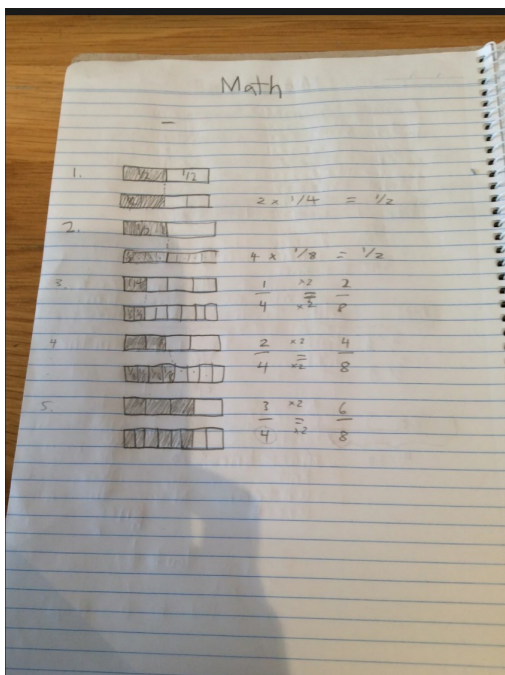 Math
1.
1/2 1/2
2 x 1/4 = 1/2
2.
1/2
4 x 1/8 = 1/2
3.
1/4 x2 = x2 2/8
4
2/4 x2 = x2 4/8
5.
3/4 x2 = x2 6/8